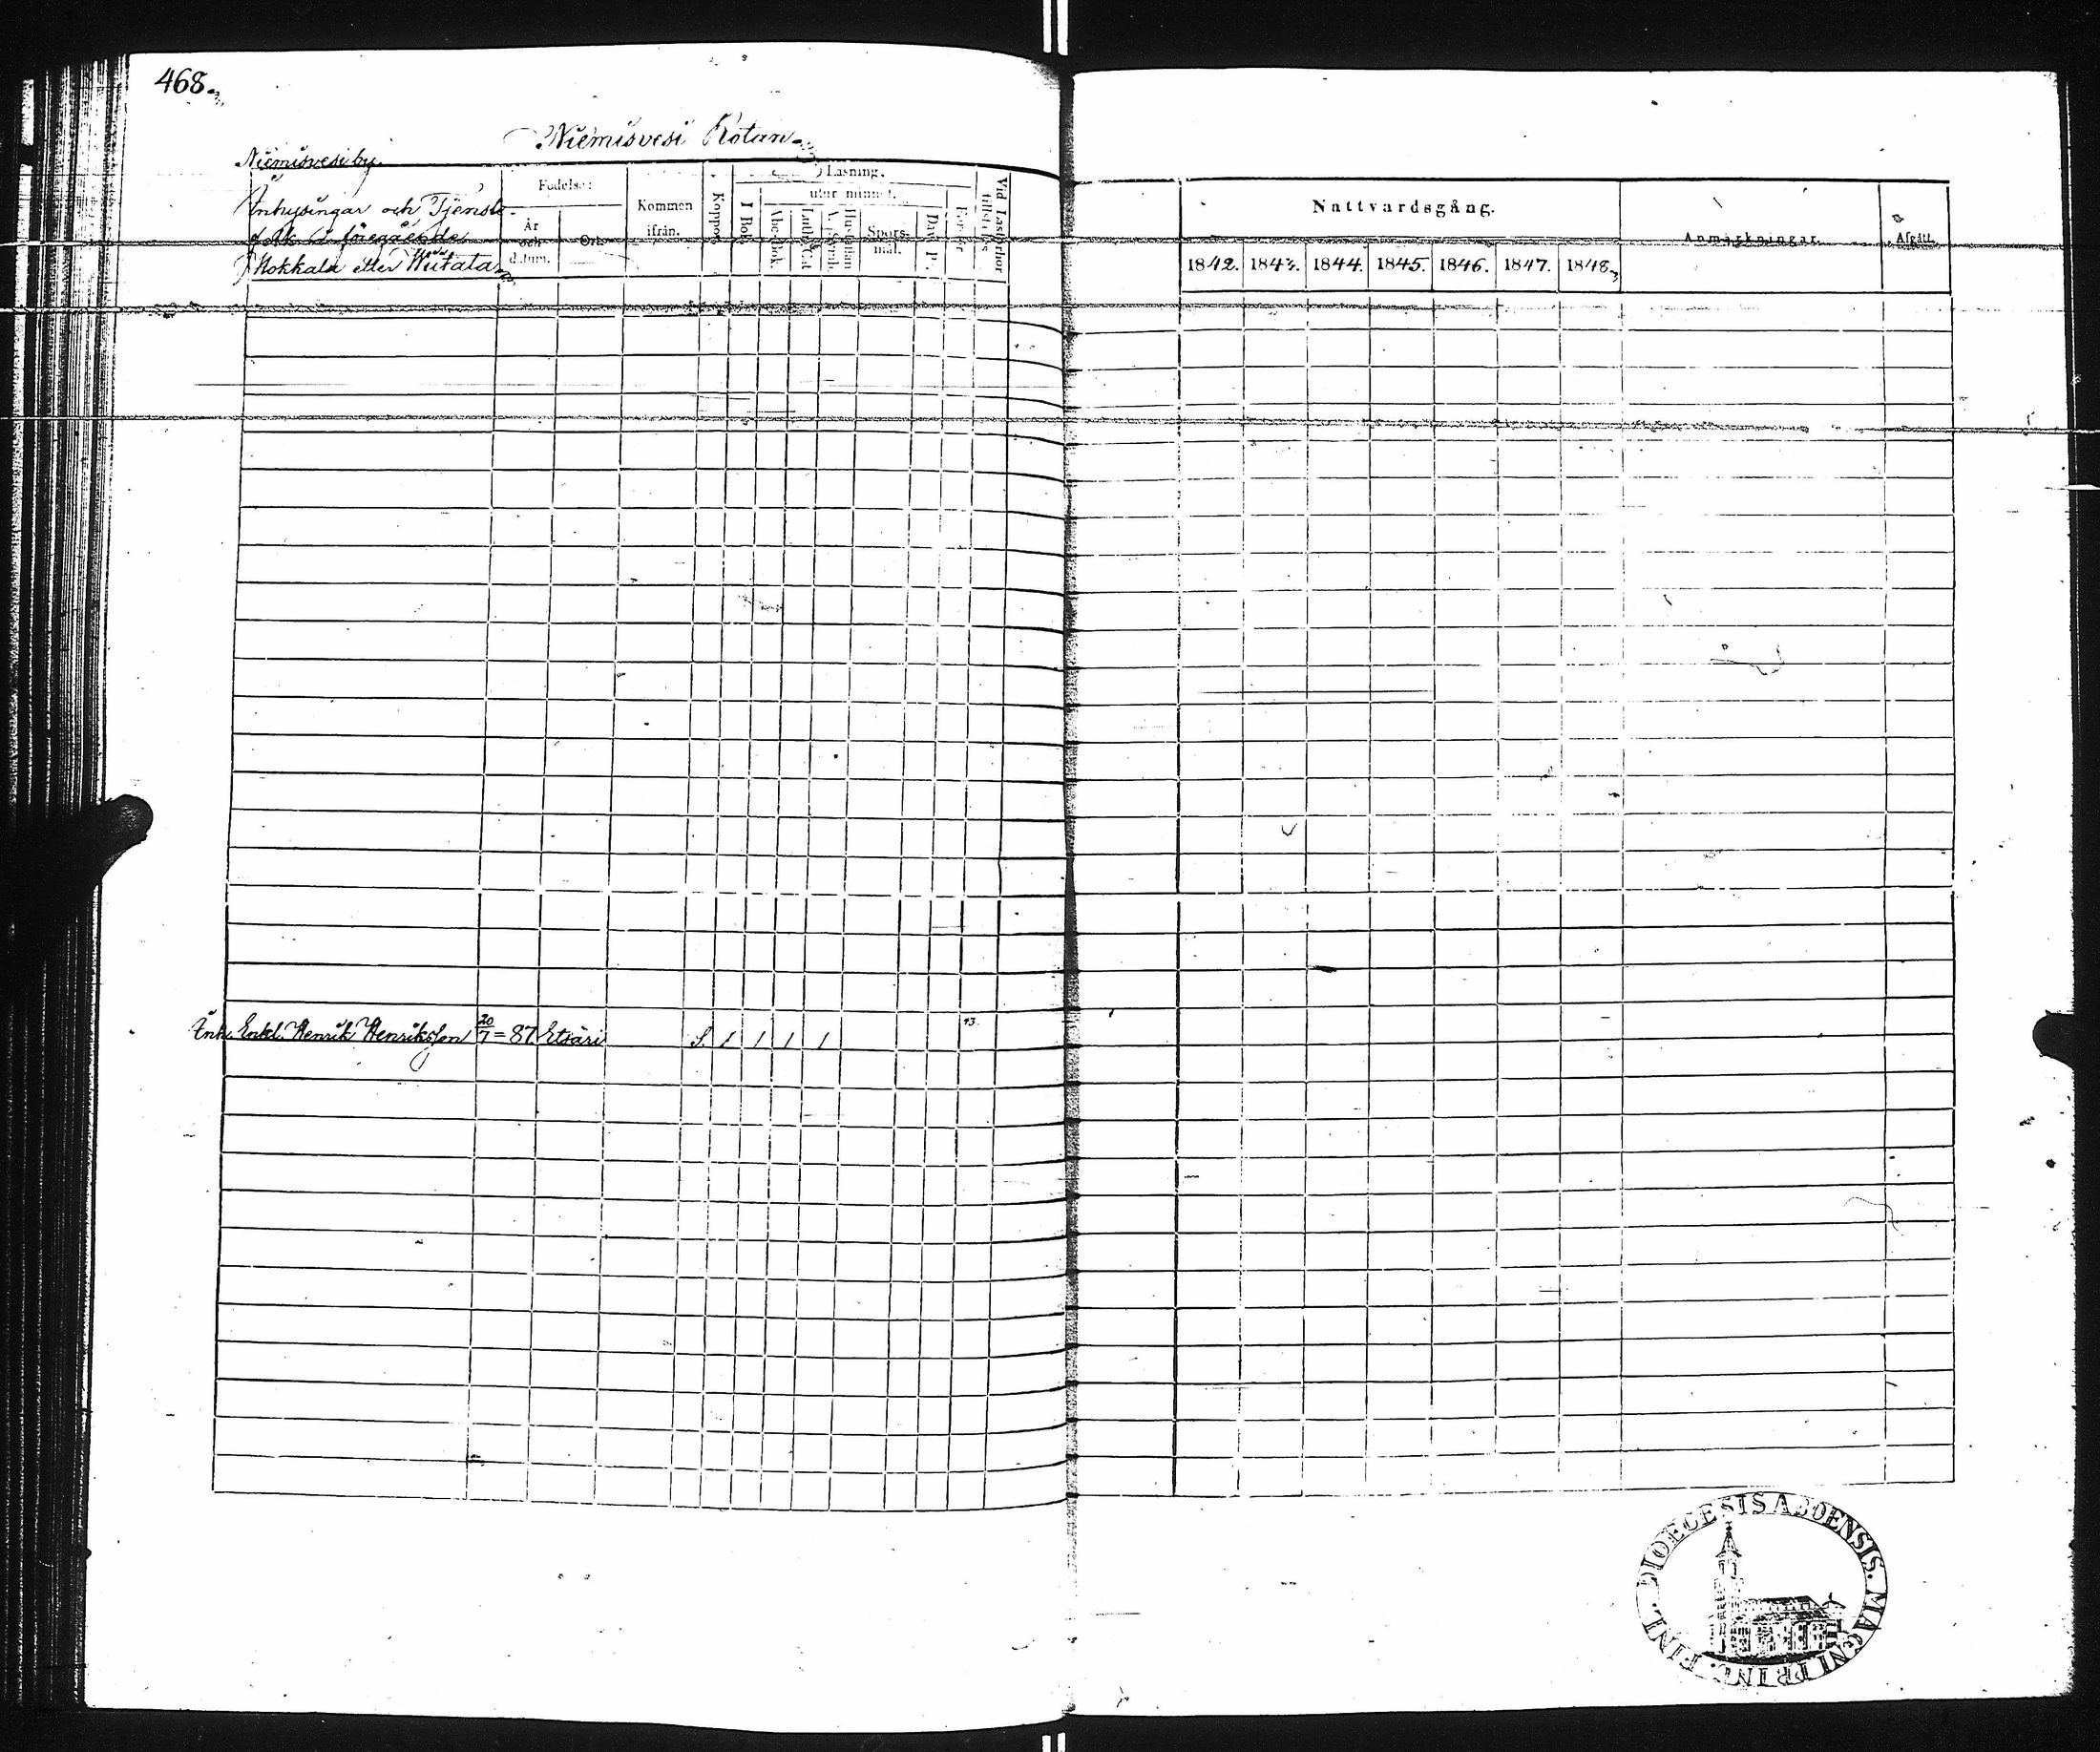 468.
Niemisvesi Rotan
Niemisvesi by.
Inhysingar och Tjenste-
folk å föregående
Kokkala eller Wiitala
Födelse:
År och datum.
Ort.
Kommen ifrån.
Koppor.
Läsning.
I Bok.
utur minnet.
Abc-Bok.
Luth. Cat.
Hustaflan A. Symb.
Spörs-mål.
Dav. P.
Vid Läsförhör tillstädes
Nattvardsgång.
1842. 1843. 1844. 1845. 1846. 1847. 1848.
Anmärkningar.
Afgått.
Inh. Enkl. Henrik Henriksson 20/7 = 87 Etsäri S. / / / / 43.
DIOECESIS ABOENSIS. MAGNI PRINC. FINL.